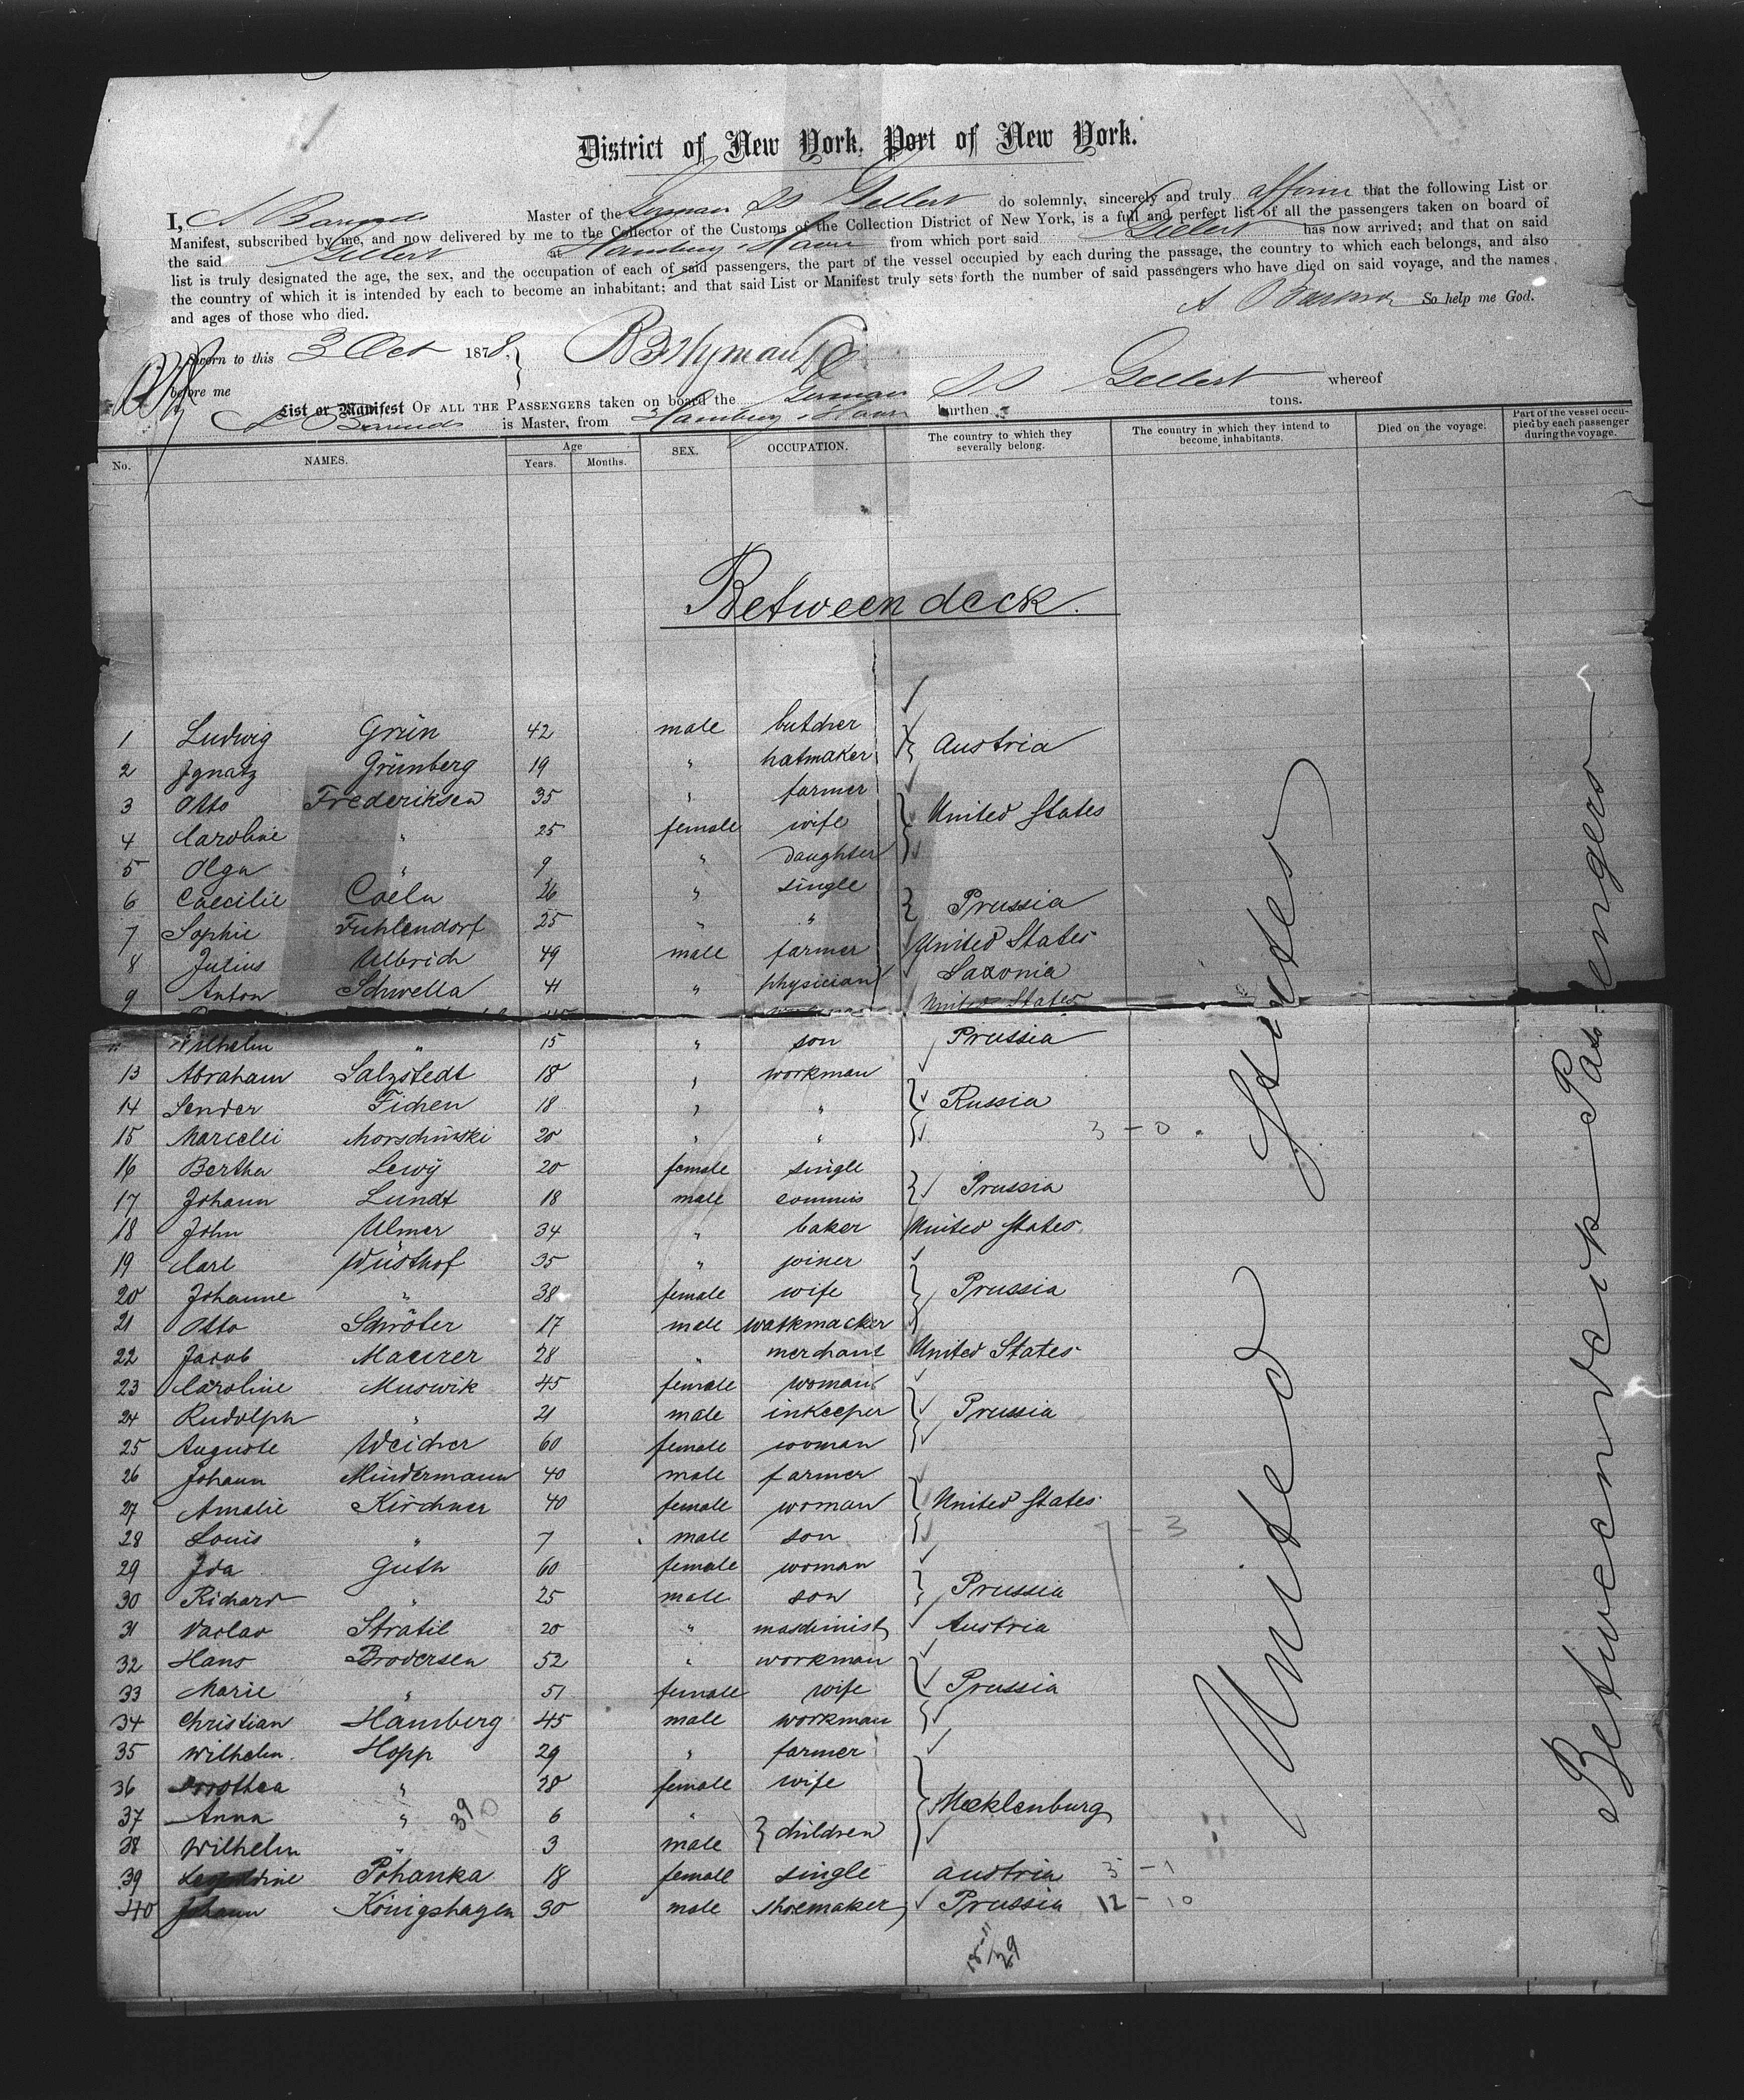 District of New York, Port of New York.
I, A Barends Master of the German SS Gellert do solemnly, sincerely and truly affirm that the following List or
Manifest, subscribed by me, and now delivered by me to the Collector of the Customs of the Collection District of New York, is a full and perfect list of all the passengers taken on board of
the said Gellert at Hamburg & Havre from which port said Gellert has now arrived; and that on said
list is truly designated the age, the sex, and the occupation of each of said passengers, the part of the vessel occupied by each during the passage, the country to which each belongs, and also
the country of which it is intended by each to become an inhabitant; and that said List or Manifest truly sets forth the number of said passengers who have died on said voyage, and the names
and ages of those who died. A Barends So help me God.
Sworn to this 3 Oct 1878,
before me
List or Manifest OF ALL THE PASSENGERS taken on board the German SS Gellert whereof
A Barends is Master, from Hamburg & Havre burthen tons.
No. NAMES. Age Years. Months. SEX. OCCUPATION. The country to which they severally belong. The country in which they intend to become inhabitants. Died on the voyage. Part of the vessel occupied by each passenger during the voyage.
Between deck.
1 Ludwig Grün 42 male butcher
2 Ignatz Grünberg 19 " hatmaker Austria
3 Otto Frederiksen 35 " farmer
4 Caroline " 25 female wife United States
5 Olga " 9 " daughter
6 Caecilie Coeln 26 " single
7 Sophie Fuhlendorf 25 " " Prussia
8 Julius Ulbrich 49 male farmer United States
9 Anton Schwella 41 " physician Saxonia
United States
Wilhelm " 15 " son Prussia
13 Abraham Salzstedt 18 " workman
14 Sender Fichen 18 " " Russia
15 Marcelli Morschinski 20 " " 3 - 0
16 Bertha Lewÿ 20 female single
17 Johann Lundt 18 male commis Prussia
18 John Ulmer 34 " baker United States
19 Carl Wüsthof 35 " joiner
20 Johanne " 38 female wife Prussia
21 Otto Schröter 17 male watkmacker
22 Jacob Maurer 28 " merchant United States
23 Caroline Muswik 45 female woman
24 Rudolph " 21 male inkeeper Prussia
25 Auguste Weicher 60 female woman
26 Johann Mindermann 40 male farmer
27 Amalie Kirchner 40 female woman United States
28 Louis " 7 male son 7 - 3
29 Ida Guth 60 female woman
30 Richard " 25 male son Prussia
31 Vaclav Stratil 20 " maschinist Austria
32 Hans Brodersen 52 " workman
33 Marie " 51 female wife Prussia
34 Christian Hamberg 45 male workman
35 Wilhelm Hopp 29 " farmer
36 Dorothea " 28 female wife
37 Anna " 39 6 " children Mecklenburg
38 Wilhelm " 3 male
39 Leopoldine Pohanka 18 female single Austria 3 - 1
40 Johann Königshagen 30 male shoemaker Prussia 12 - 10
United States
Betweendeck-Passengers